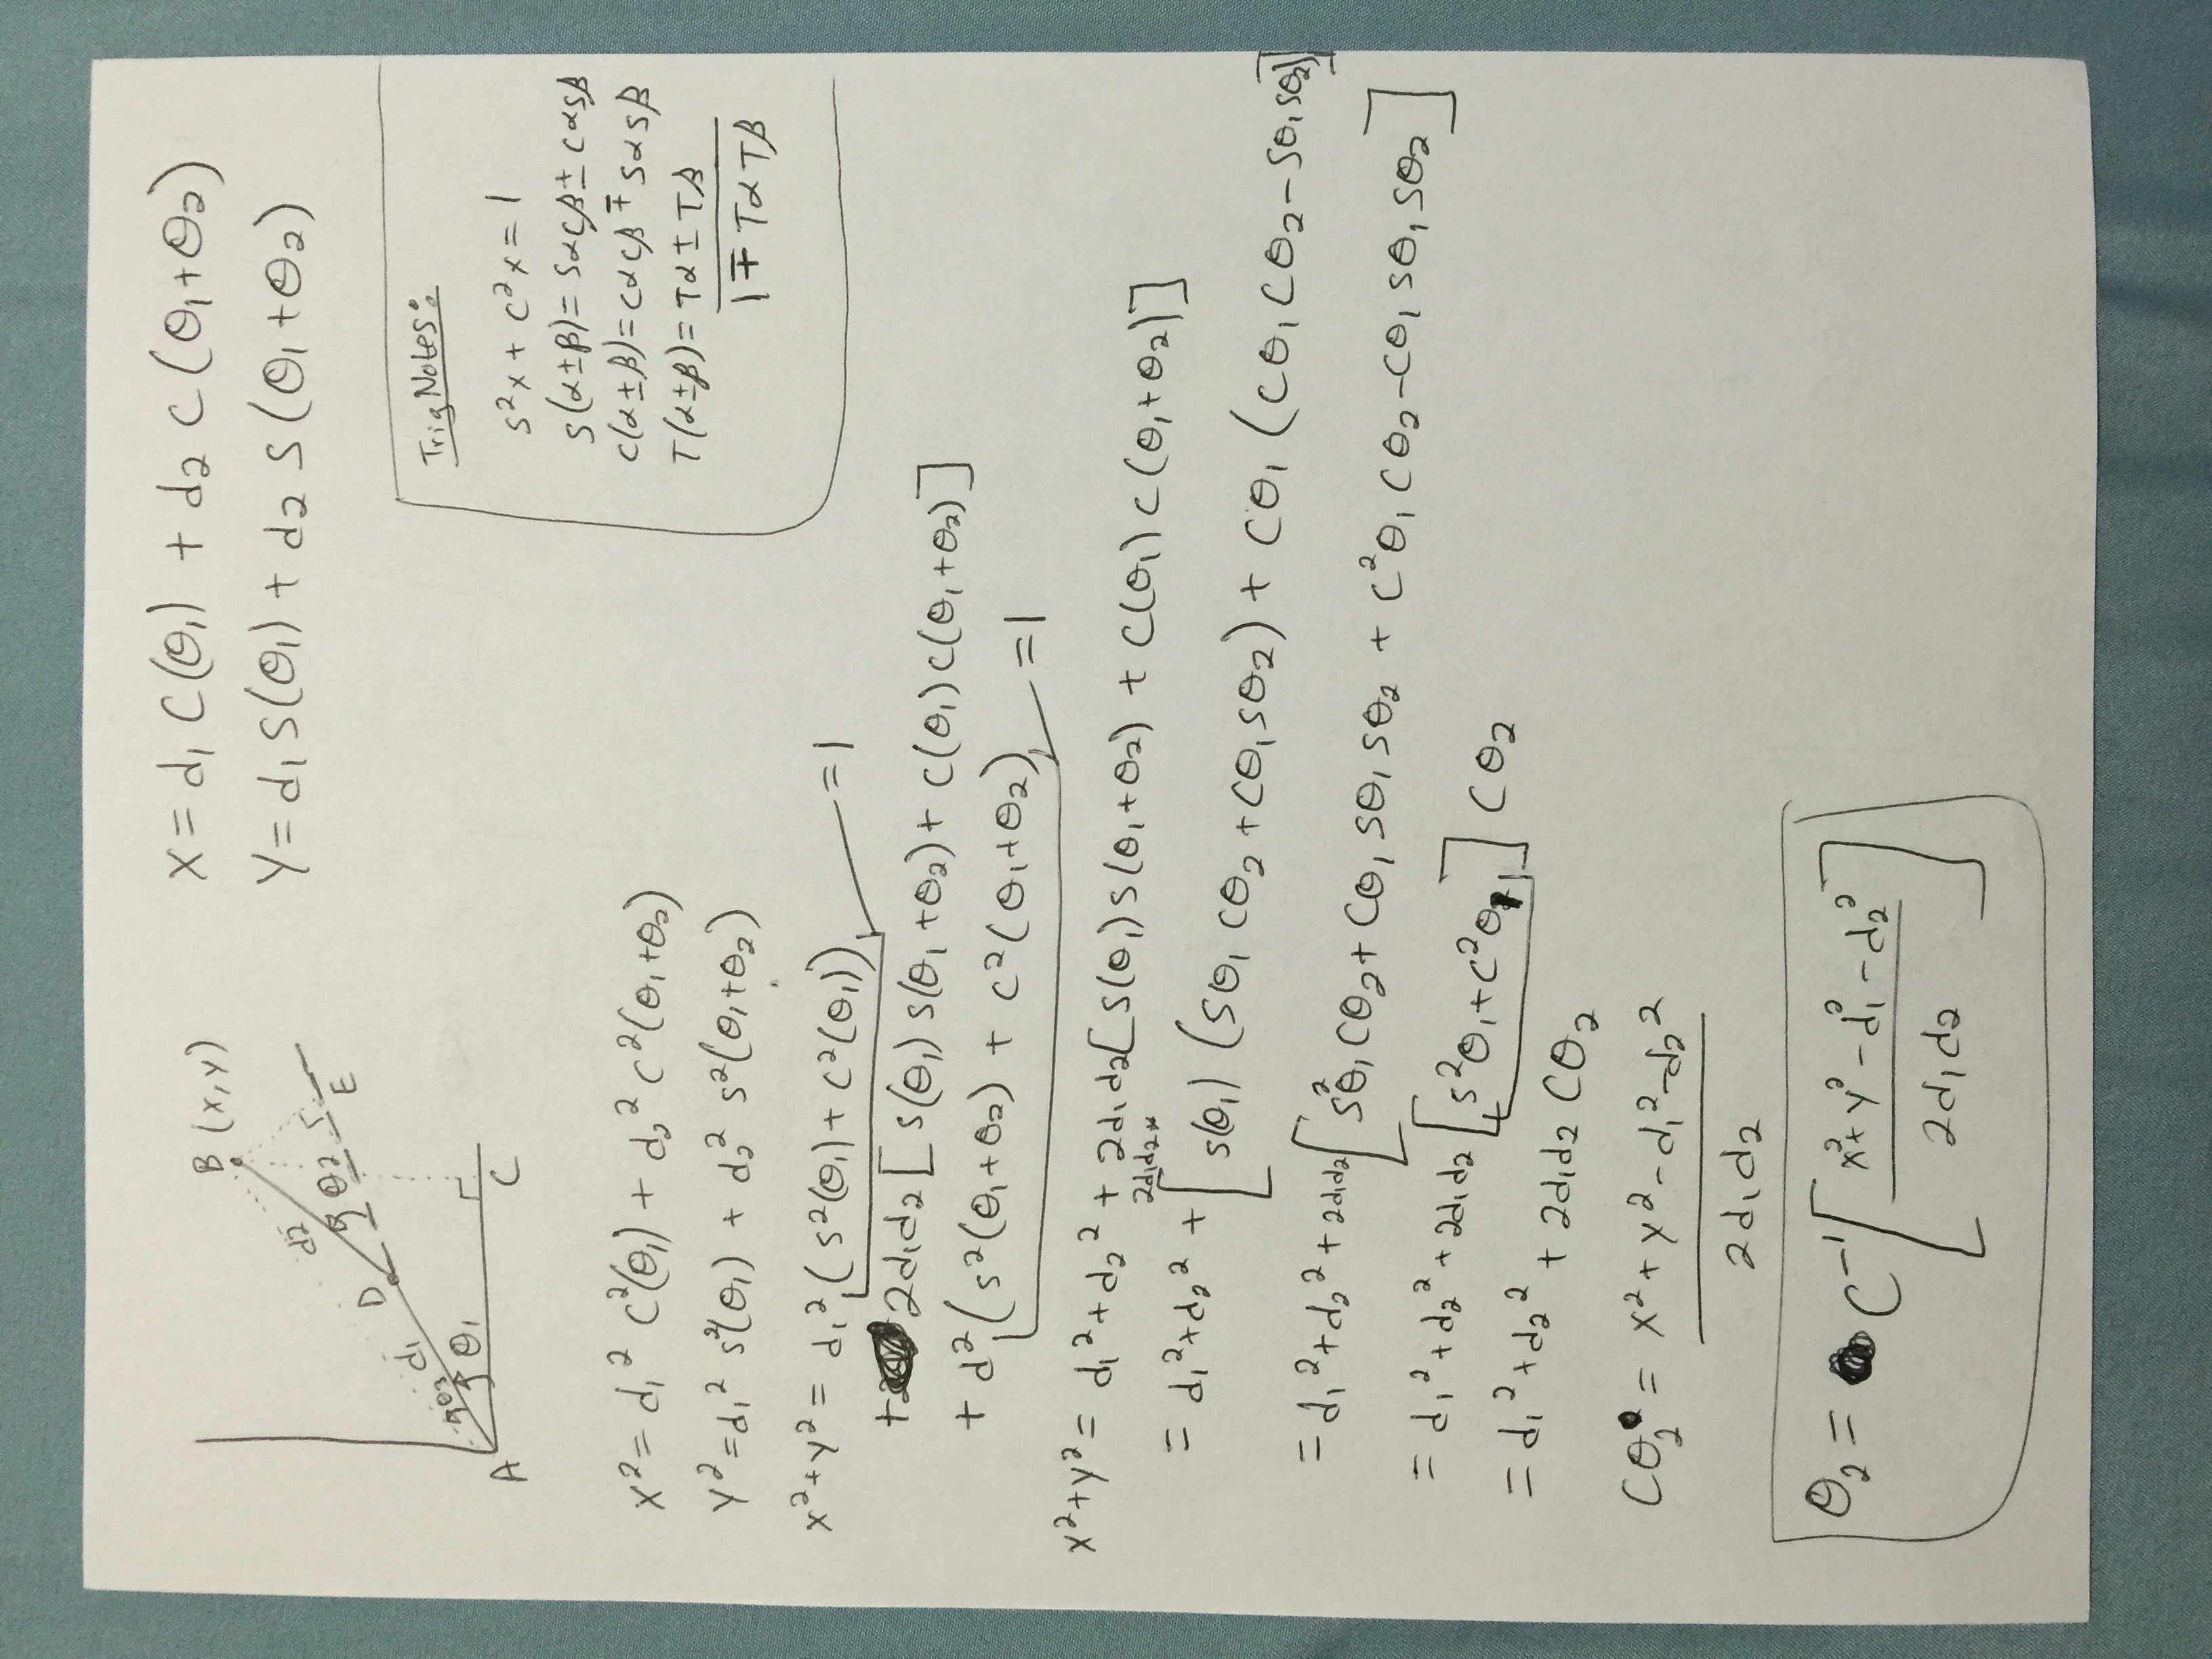 B (x,y)
d2
θ2
E
D
d₁
θ3
θ₁
A
C
X = d₁ C(θ₁) + d₂ C(θ₁+θ₂)
Y = d₁ S(θ₁) + d₂ S(θ₁+θ₂)
Trig Notes:
S²x + C²x = 1
S(α±β) = SαCβ ± CαSβ
C(α±β) = CαCβ ∓ SαSβ
T(α±β) = Tα ± Tβ
1 ∓ TαTβ
X² = d₁² C²(θ₁) + d₂² C²(θ₁+θ₂)
Y² = d₁² S²(θ₁) + d₂² S²(θ₁+θ₂)
X²+Y² = d₁² (S²(θ₁) + C²(θ₁)) = 1
+ 2d₁d₂ [S(θ₁) S(θ₁+θ₂) + C(θ₁) C(θ₁+θ₂)]
+ d² (S²(θ₁+θ₂) + C²(θ₁+θ₂)) = 1
X²+Y² = d₁²+d₂² + 2d₁d₂ [S(θ₁) S(θ₁+θ₂) + C(θ₁) C(θ₁+θ₂)]
2d₁d₂*
= d₁²+d₂² + [S(θ₁) (Sθ₁ Cθ₂ + Cθ₁Sθ₂) + Cθ₁ (Cθ₁ Cθ₂ - Sθ₁Sθ₂)]
= d₁²+d₂² + 2d₁d₂ [S²θ₁ Cθ₂ + Cθ₁ Sθ₁ Sθ₂ + C²θ₁ Cθ₂ - Cθ₁ Sθ₁ Sθ₂]
= d₁²+d₂² + 2d₁d₂ [S²θ₁ + C²θ₁] Cθ₂
= d₁²+d₂² + 2d₁d₂ Cθ₂
Cθ₂ = X²+Y²-d₁²-d₂²
2d₁d₂
θ₂ = C⁻¹ [X²+Y²-d₁²-d₂²
2d₁d₂]